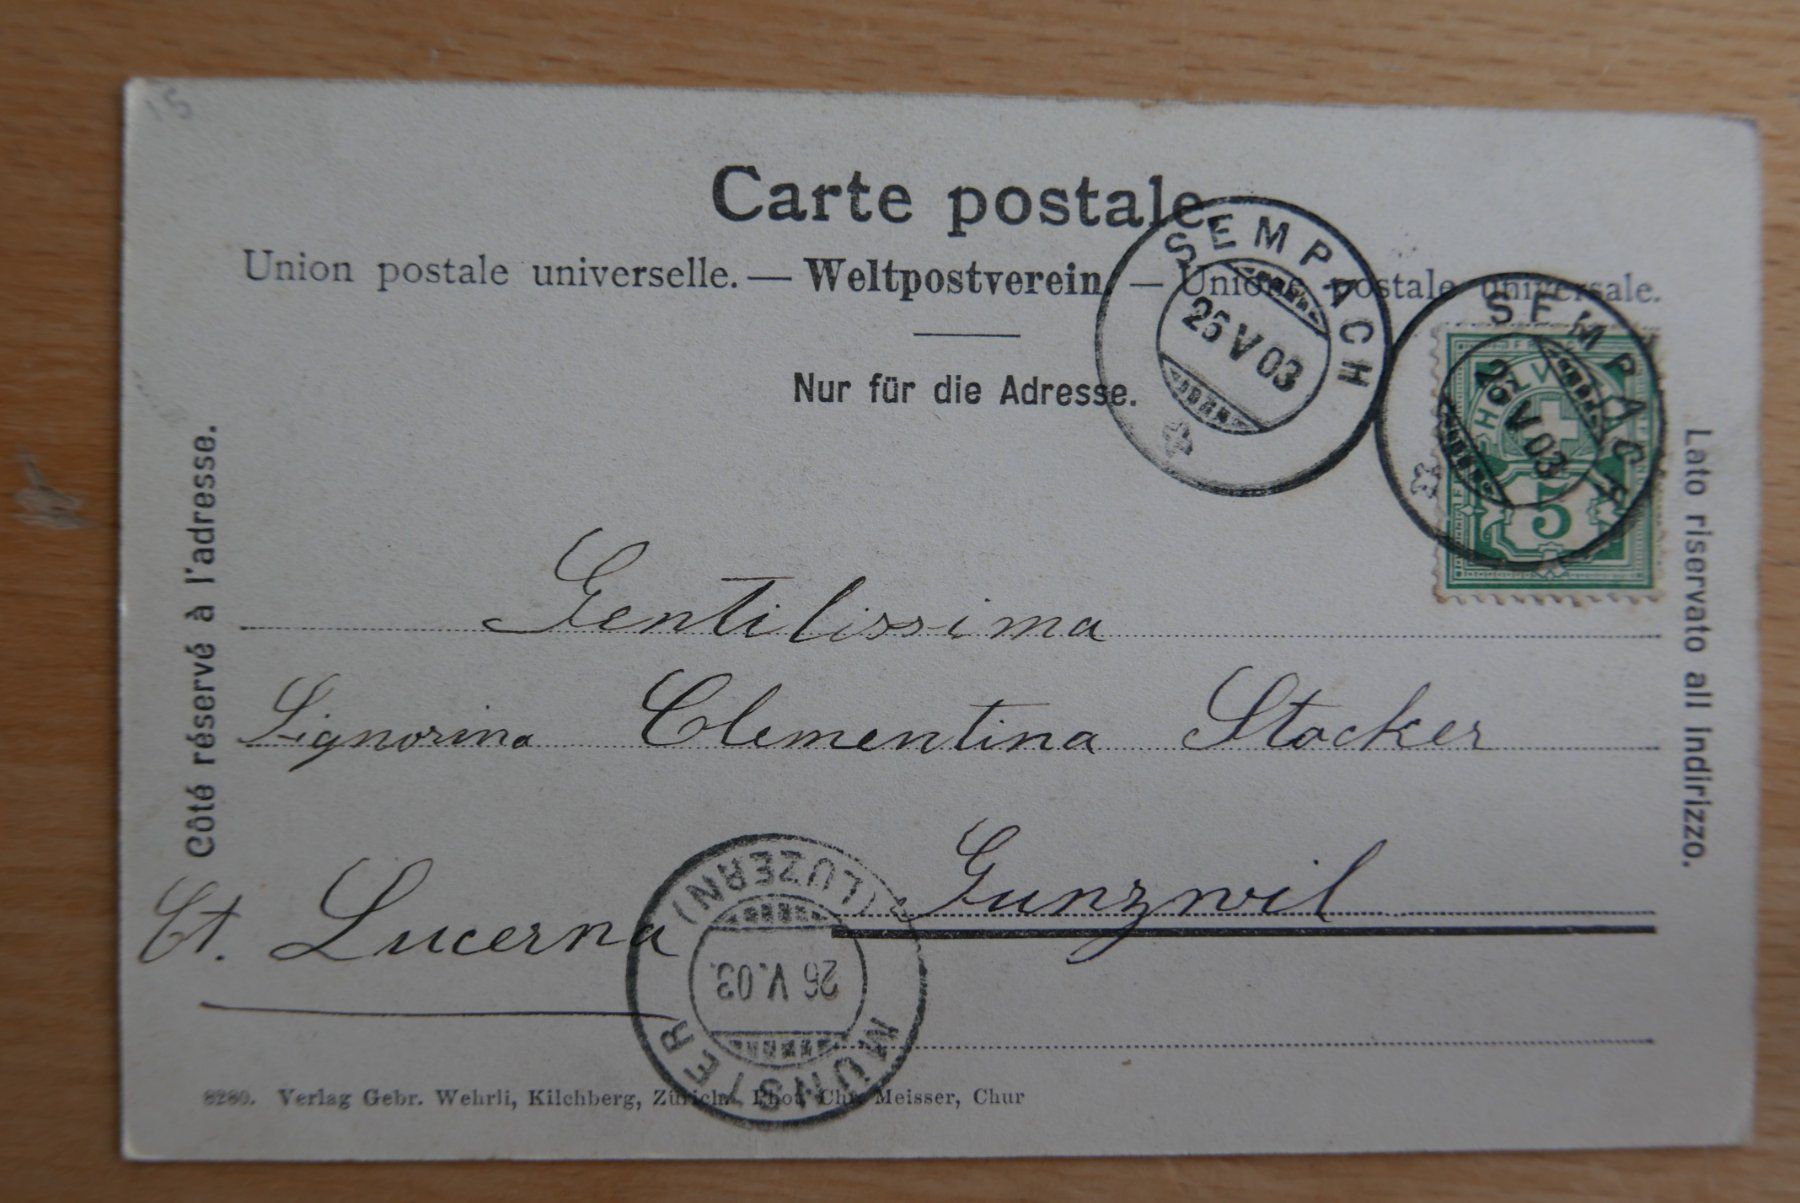 15
Carte postale.
Union postale universelle. — Weltpostverein. — Unione postale universale.
Nur für die Adresse.
SEMPACH
26 V 03
SEMPACH
26 V 03
HELVETIA
5
Côté réservé à l'adresse.
Lato riservato all Indirizzo.
Gentilissima
Signorina Clementina Stocker
Gunzwil
Ct. Lucerna
MÜNSTER (LUZERN)
26 V. 03.
8280. Verlag Gebr. Wehrli, Kilchberg, Zürich. Phot. Chr. Meisser, Chur